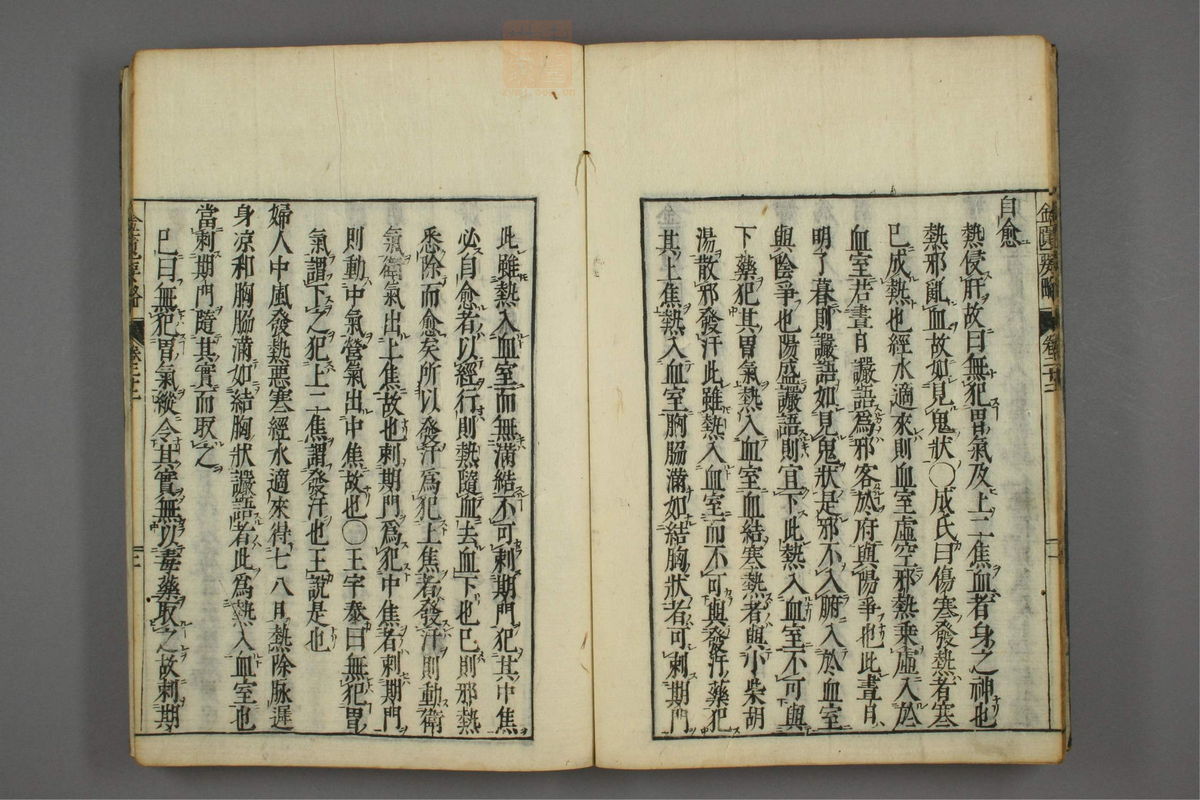 自愈
熱侵肝故曰無犯胃氣及上二焦血者身之神也
熱邪亂血故如見鬼狀〇成氏曰傷寒發熱者寒
已成熱也經水適來則血室虛空邪熱乘虛入於
血室若晝日譫語爲邪客於府與陽爭也此晝日
明了暮則譫語如見鬼狀是邪不入腑入於血室
與陰爭也陽盛譫語則宜下此熱入血室不可與
下藥犯其胃氣熱入血室血結寒熱者與小柴胡
湯散邪發汗此雖熱入血室而不可與發汗藥犯
其上焦熱入血室胸脇滿如結胸狀者可刺期門
此雖熱入血室而無滿結不可刺期門犯其中焦
必自愈者以經行則熱隨血去血下也已則邪熱
悉除而愈矣所以發汗爲犯上焦者發汗則動衛
氣衛氣出上焦故也刺期門爲犯中焦者刺期門
則動中氣營氣出中焦故也〇王宇泰曰無犯胃
氣謂下之犯上二焦謂發汗也王說是也
婦人中風發熱惡寒經水適來得七八日熱除脉遲
身凉和胸脇滿如結胸狀譫語者此爲熱入血室也
當刺期門隨其實而取之
已曰無犯胃氣縱令其實無以毒藥取之故刺期